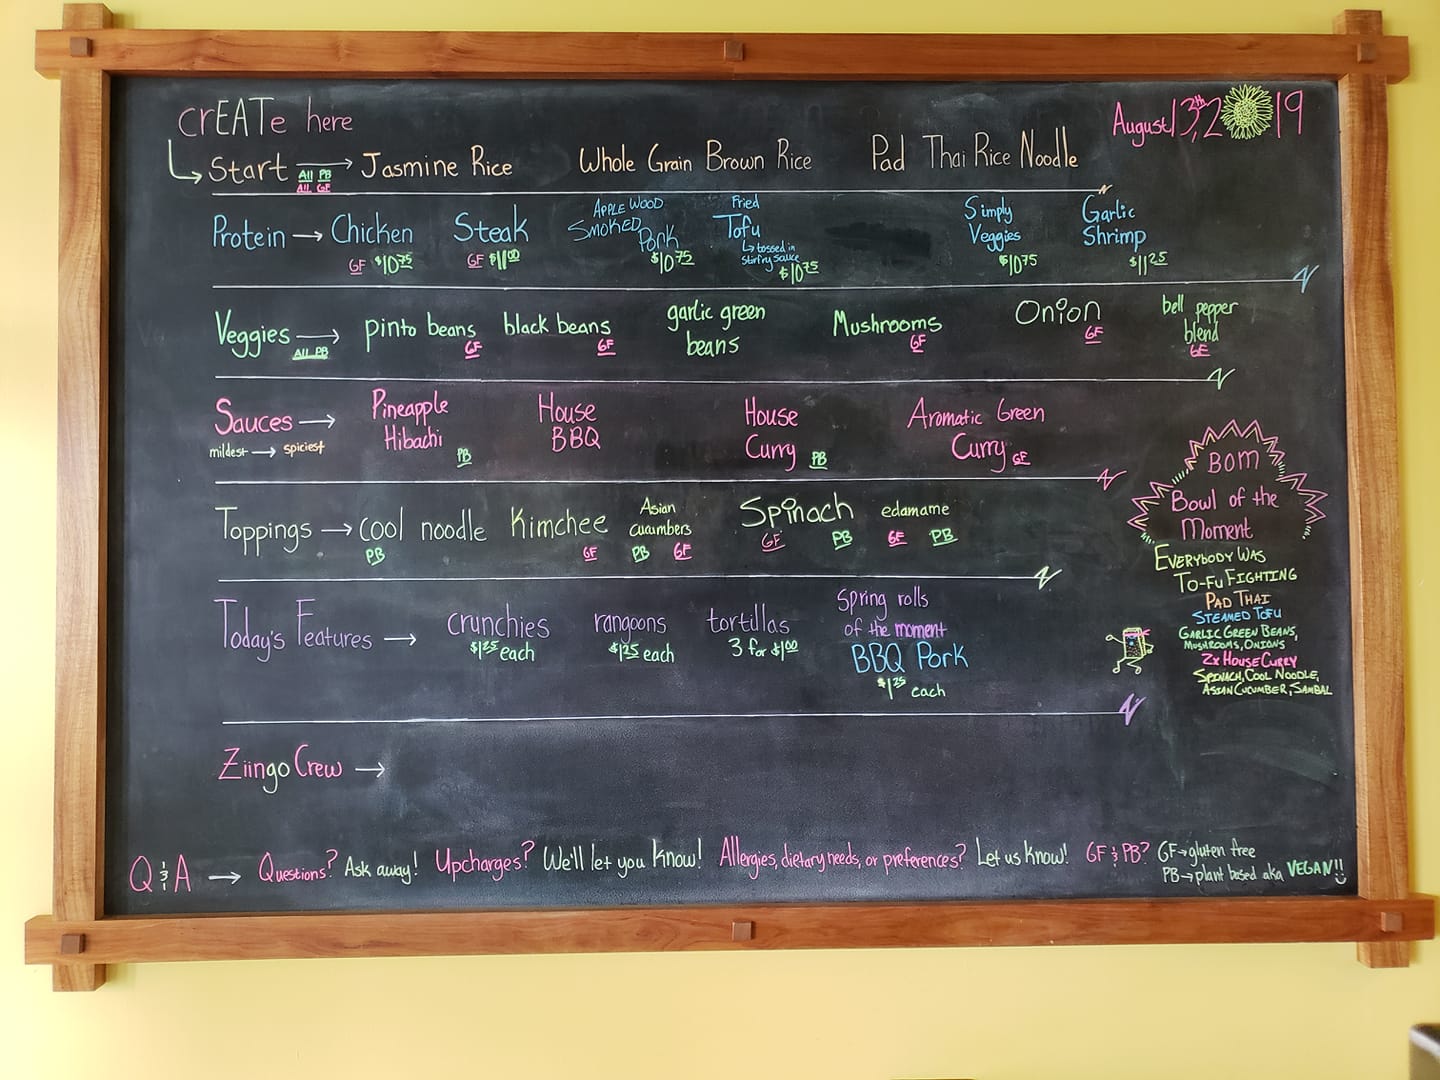 crEATe here
August 13th, 2019
Start → Jasmine Rice Whole Grain Brown Rice Pad Thai Rice Noodle
All PB
All GF
Protein → Chicken Steak Apple Wood Smoked Pork Fried Tofu Simply Veggies Garlic Shrimp
tossed in
stirfry sauce
GF $10.75 GF $11.00 $10.75 $10.75 $10.75 $11.25
Veggies → pinto beans black beans garlic green beans Mushrooms Onion bell pepper blend
All PB GF GF GF GF GF
Sauces → Pineapple Hibachi House BBQ House Curry Aromatic Green Curry
mildest → spiciest PB PB GF
Toppings → cool noodle Kimchee Asian cucumbers Spinach edamame
PB GF PB GF GF PB GF PB
Today's Features → crunchies rangoons tortillas Spring rolls
of the moment
BBQ Pork
$1.25 each $1.25 each 3 for $1.00 $1.25 each
BOM
Bowl of the
Moment
Everybody Was
To-Fu Fighting
Pad Thai
Steamed Tofu
Garlic Green Beans,
Mushrooms, Onions
2x House Curry
Spinach, Cool Noodle,
Asian Cucumber, Sambal
Ziingo Crew →
Q & A → Questions? Ask away! Upcharges? We'll let you know! Allergies, dietary needs, or preferences? Let us know! GF & PB? GF→gluten free
PB→plant based aka VEGAN!!